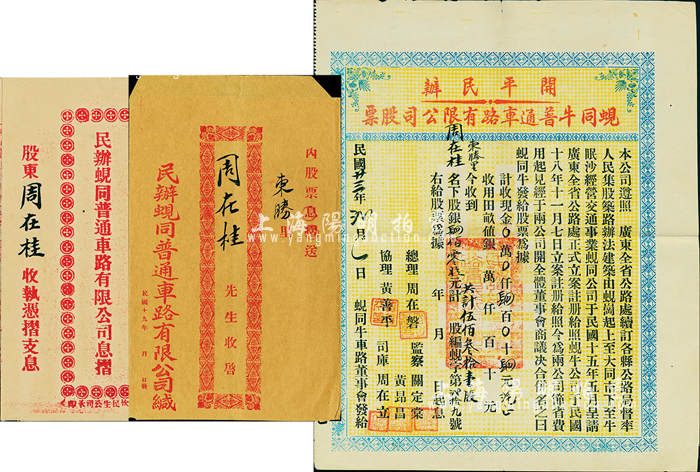 民辦蜆同普通車路有限公司息摺
股東周在桂收執憑摺支息
內股票息摺送
東勝里
周在桂先生收啓
民辦蜆同普通車路有限公司緘
民國十九年 月 日發
開平民辦
蜆同牛普通車路有限公司股票
本公司遵照 廣東全省公路處續訂各縣公路局督率
人民集股築路辦法建築由蜆崗起上至大同市下至牛
眼沙經營交通事業蜆同公司于民國十五年五月呈請
廣東全省公路處正式立案註册給照蜆牛公司于民國
十八年十一月七日立案註册給照今為兩公司節省費
用起見經于兩公司開全體董事會商議決合併名之曰
蜆同牛發給股票為據
計收現金
收用田畝值銀 萬 仟 百 十 元
東勝里
周在桂
今收到
名下股銀
共計伍佰叁拾壹股
右給股票為據
年 月 起息
總理 周在磐
監察 關定棠
黃昻昌
協理 黃善平
司庫 周在立
蜆同牛車路董事會發給
上海陽明拍賣
yangmingauction